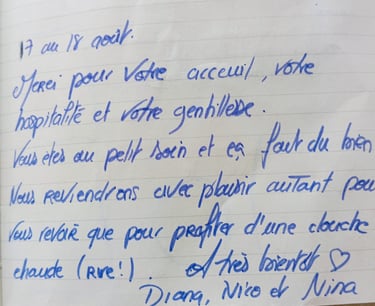 17 au 18 août.
Merci pour Votre acceuil, votre
hospitalité et votre gentillesse.
Vous êtes au petit soin et ça fait du bien
Nous reviendrons avec plaisir autant pour
Vous revoir que pour profiter d'une douche
chaude (Rire!). A très bientôt ♡
Diana, Nico et Nina